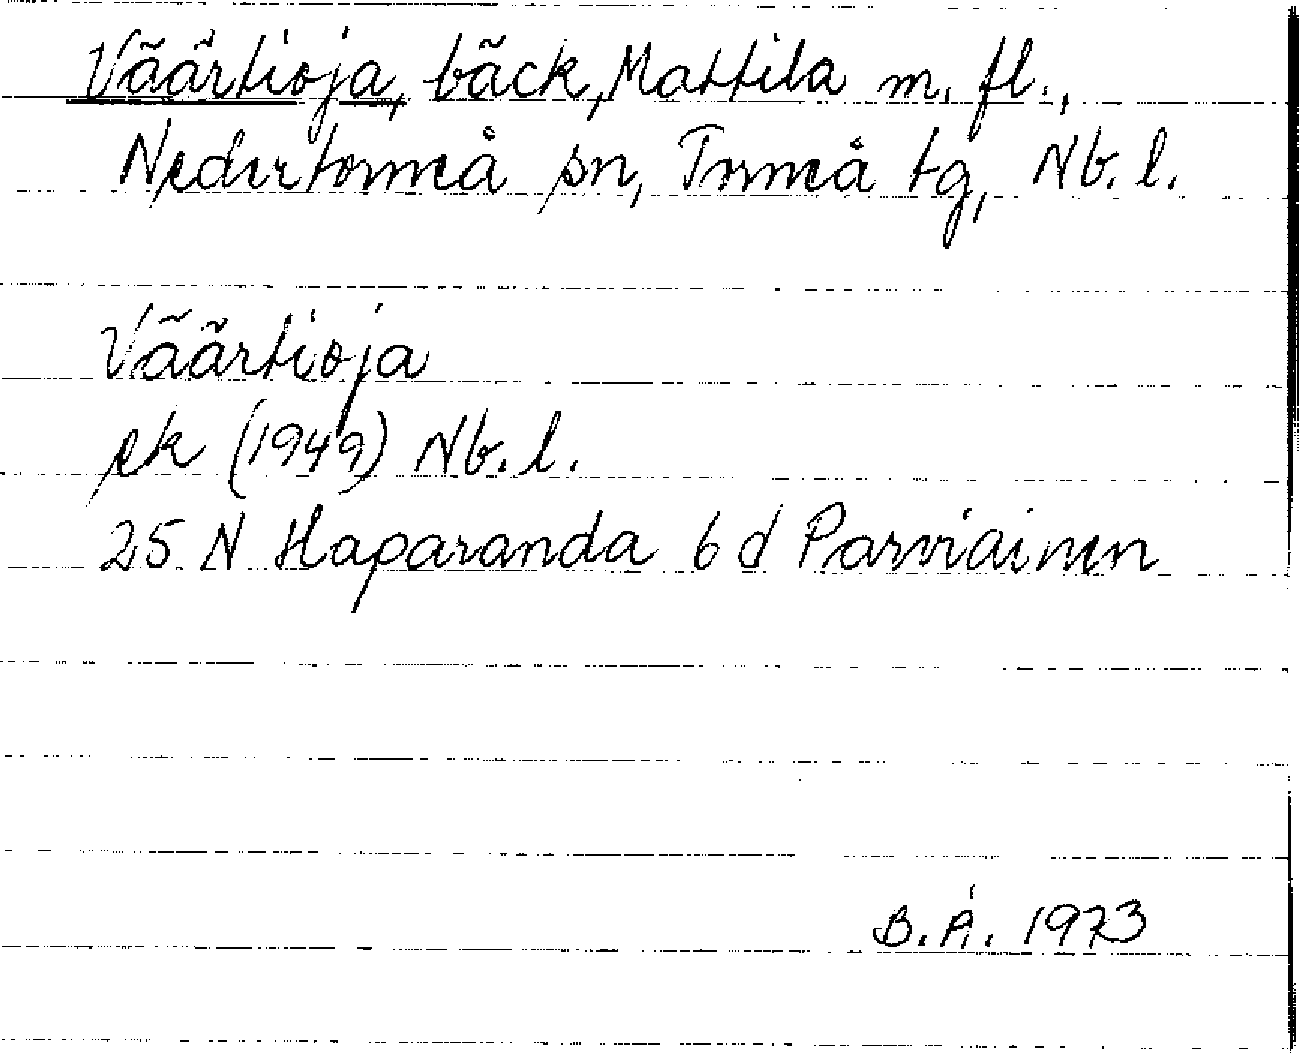 Väärtioja, bäck, Mattila m. fl.,
Nedertorneå sn, Torneå tg, Nb. l.
Väärtioja
ek (1949) Nb. l.
25 N Haparanda 6 d Parviainen
B.Å. 1973